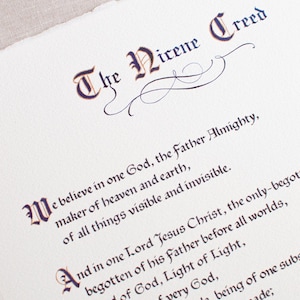 The Nicene Creed
We believe in one God, the Father Almighty,
maker of heaven and earth,
of all things visible and invisible.
And in one Lord Jesus Christ, the only-begot
begotten of his Father before all worlds,
of God, Light of Light,
very God,
being of one subs
de: